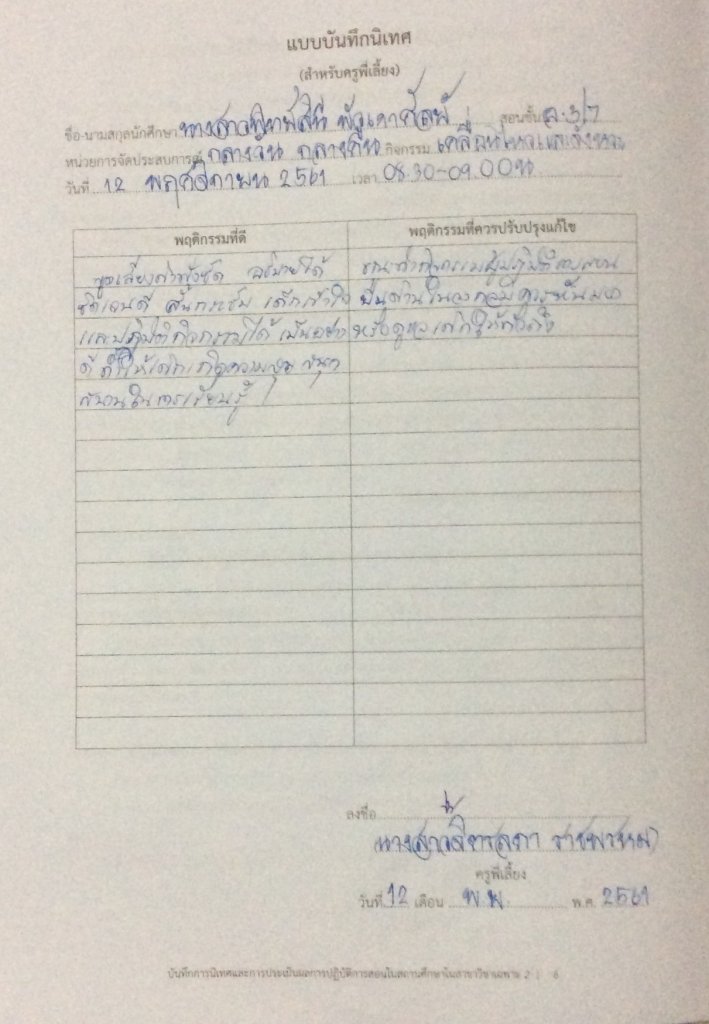 แบบบันทึกนิเทศ
(สำหรับครูพี่เลี้ยง)
ชื่อ-นามสกุลนักศึกษา นางสาว สอนชั้น อ.3/7
หน่วยการจัดประสบการณ์ กลางวัน กลางคืน กิจกรรม เคลื่อนไหวและจังหวะ
วันที่ 12 พฤศจิกายน 2561 เวลา 08.30-09.00น
พฤติกรรมที่ดี พฤติกรรมที่ควรปรับปรุงแก้ไข
พูดเสียงดังฟังชัด อธิบายได้
ชัดเจนดี เด็กเข้าใจ
และปฏิบัติกิจกรรมได้เป็นอย่าง
ดี ทำให้เด็กเกิดความสุข สนุก
สนานในการเรียนรู้
ขณะทำกิจกรรม
หรือดูแลเด็กให้ทั่วถึง
ลงชื่อ
(นางสาวจิตรลดา ราชพรหม)
ครูพี่เลี้ยง
วันที่ 12 เดือน พ.ย. พ.ศ. 2561
บันทึกการนิเทศและการประเมินผลการปฏิบัติการสอนในสถานศึกษาในสาขาวิชาเฉพาะ 2 | 6